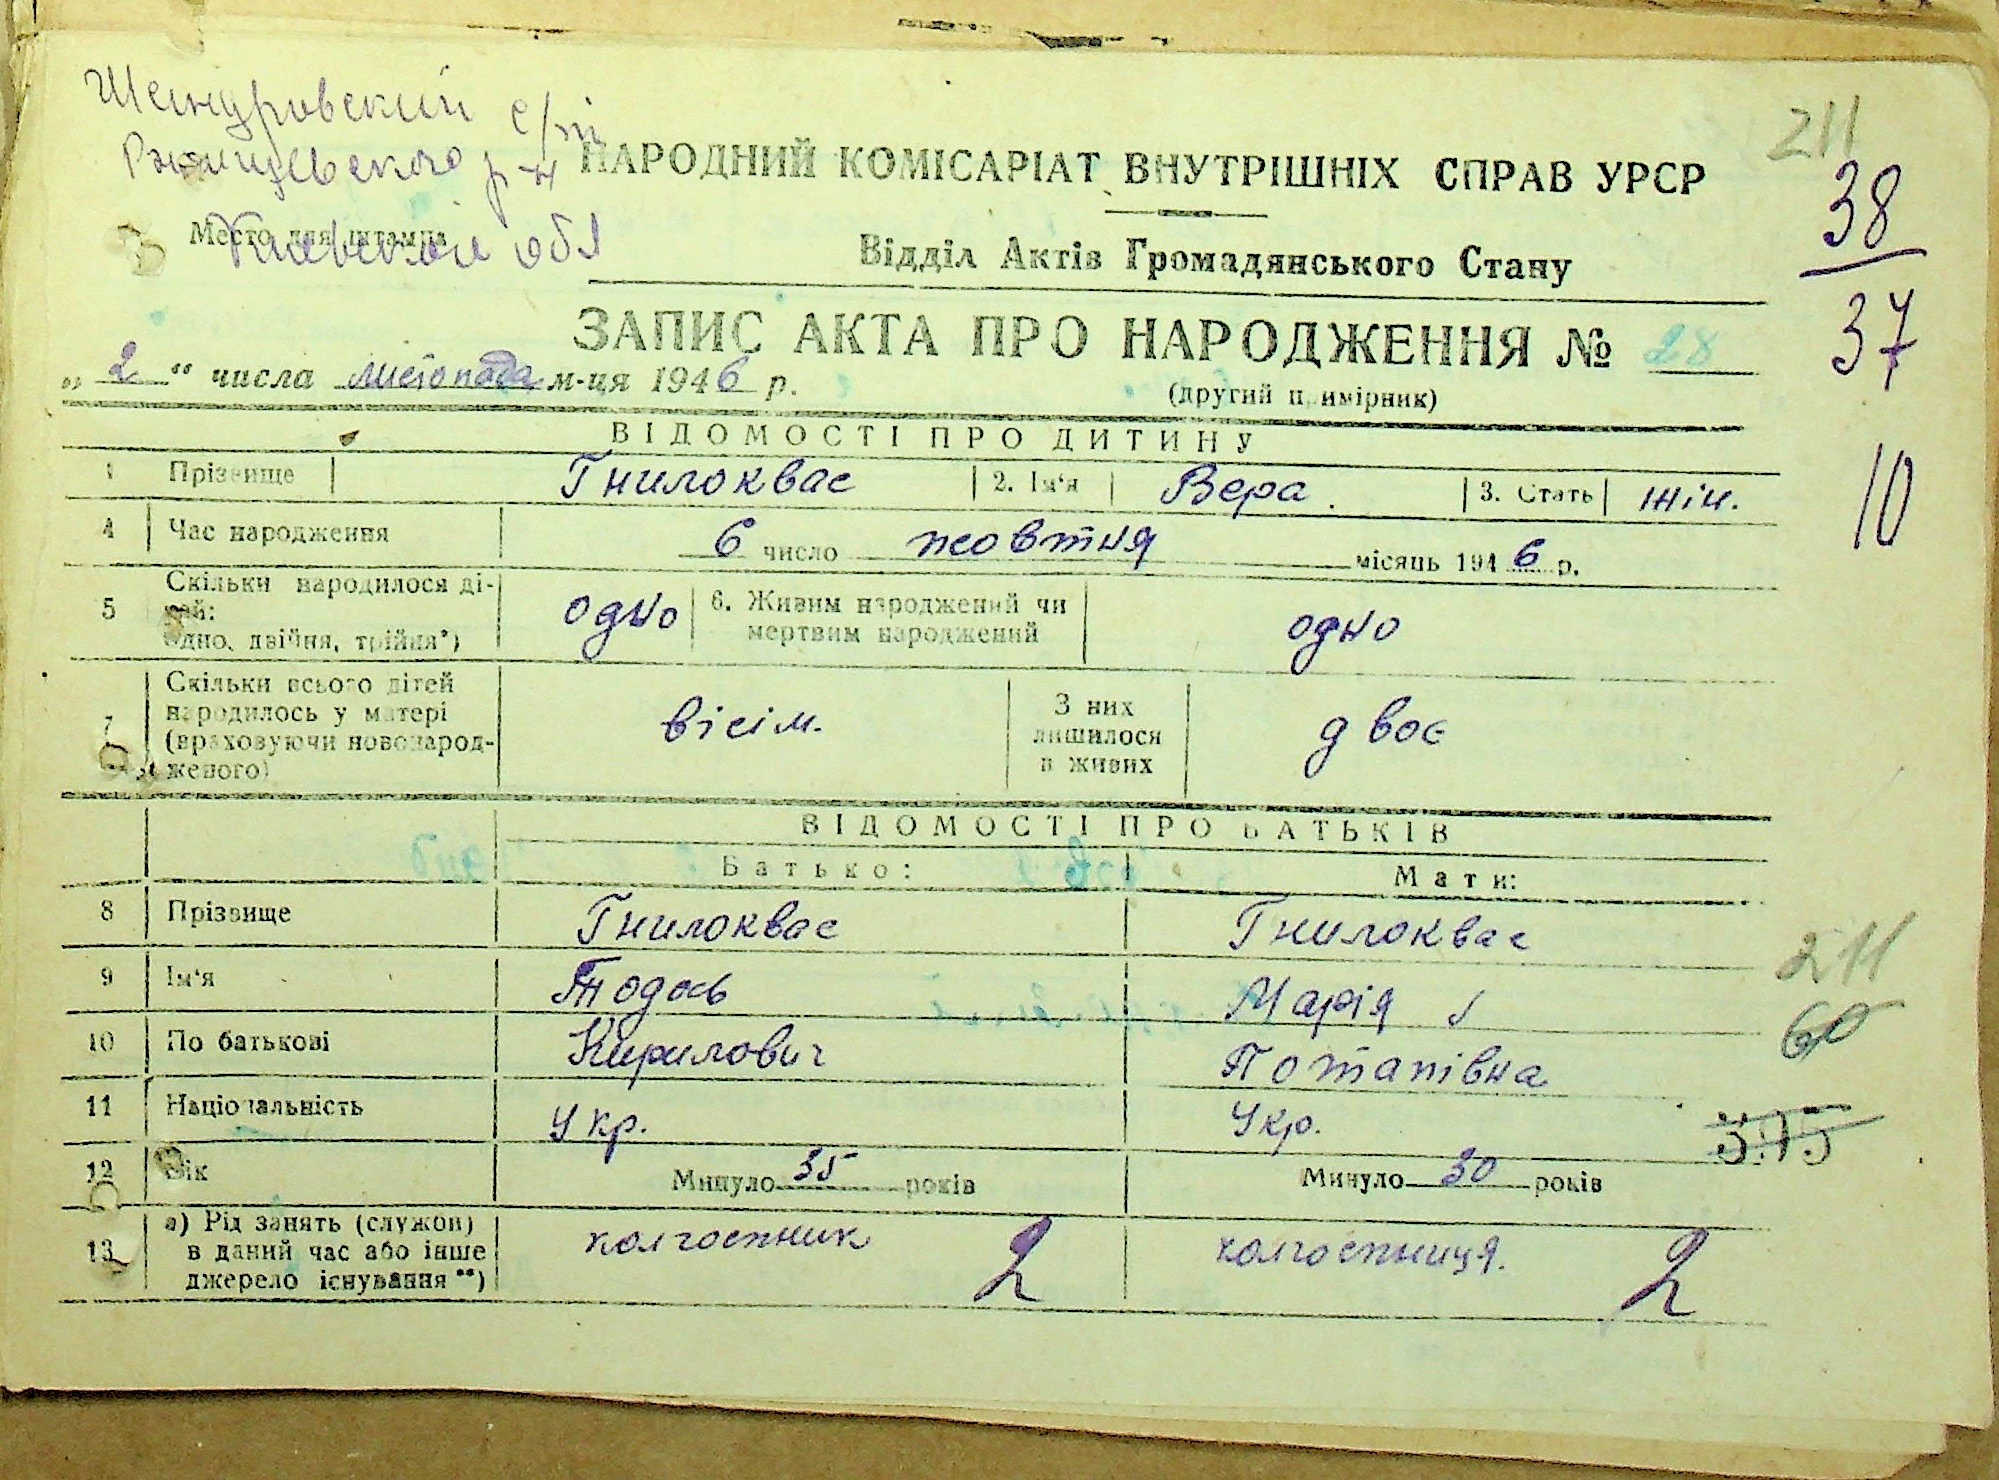 Шандровский с/т
Ржищевского р-н
Киевской обл
Место для штампа
НАРОДНИЙ КОМІСАРІАТ ВНУТРІШНІХ СПРАВ УРСР
Відділ Актів Громадянського Стану
ЗАПИС АКТА ПРО НАРОДЖЕННЯ № 28
„ 2 “ числа листопада м-ця 1946 р.
(другий примірник)
211
38
37
10
ВІДОМОСТІ ПРО ДИТИНУ
1 Прізвище Гнилоквас 2. Ім'я Вера. 3. Стать жін.
4 Час народження 6 число жовтня місяць 1946 р.
5 Скільки народилося дітей: одно, двійня, трійня*) одно 6. Живим народжений чи мертвим народжений одно
7 Скільки всього дітей народилось у матері (враховуючи новонародженого) вісім. З них лишилося в живих двоє
ВІДОМОСТІ ПРО БАТЬКІВ
Батько: Мати:
8 Прізвище Гнилоквас Гнилоквас
9 Ім'я Тодось Марія
10 По батькові Кирилович Потапівна
11 Національність Укр. Укр.
12 Вік Минуло 35 років Минуло 30 років
13 а) Рід занять (служби) в даний час або інше джерело існування **) колгоспник 2 колгоспниця. 2
211
60